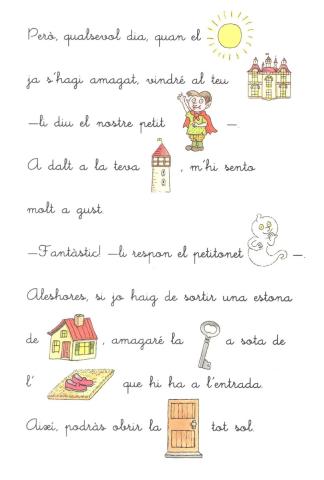 Però, qualsevol dia, quan el
ja s'hagi amagat, vindré al teu
—li diu el nostre petit —.
A dalt a la teva , m'hi sento
molt a gust.
—Fantàstic! —li respon el petitonet —.
Aleshores, si jo haig de sortir una estona
de , amagaré la a sota de
l' que hi ha a l'entrada.
Així, podràs obrir la tot sol.